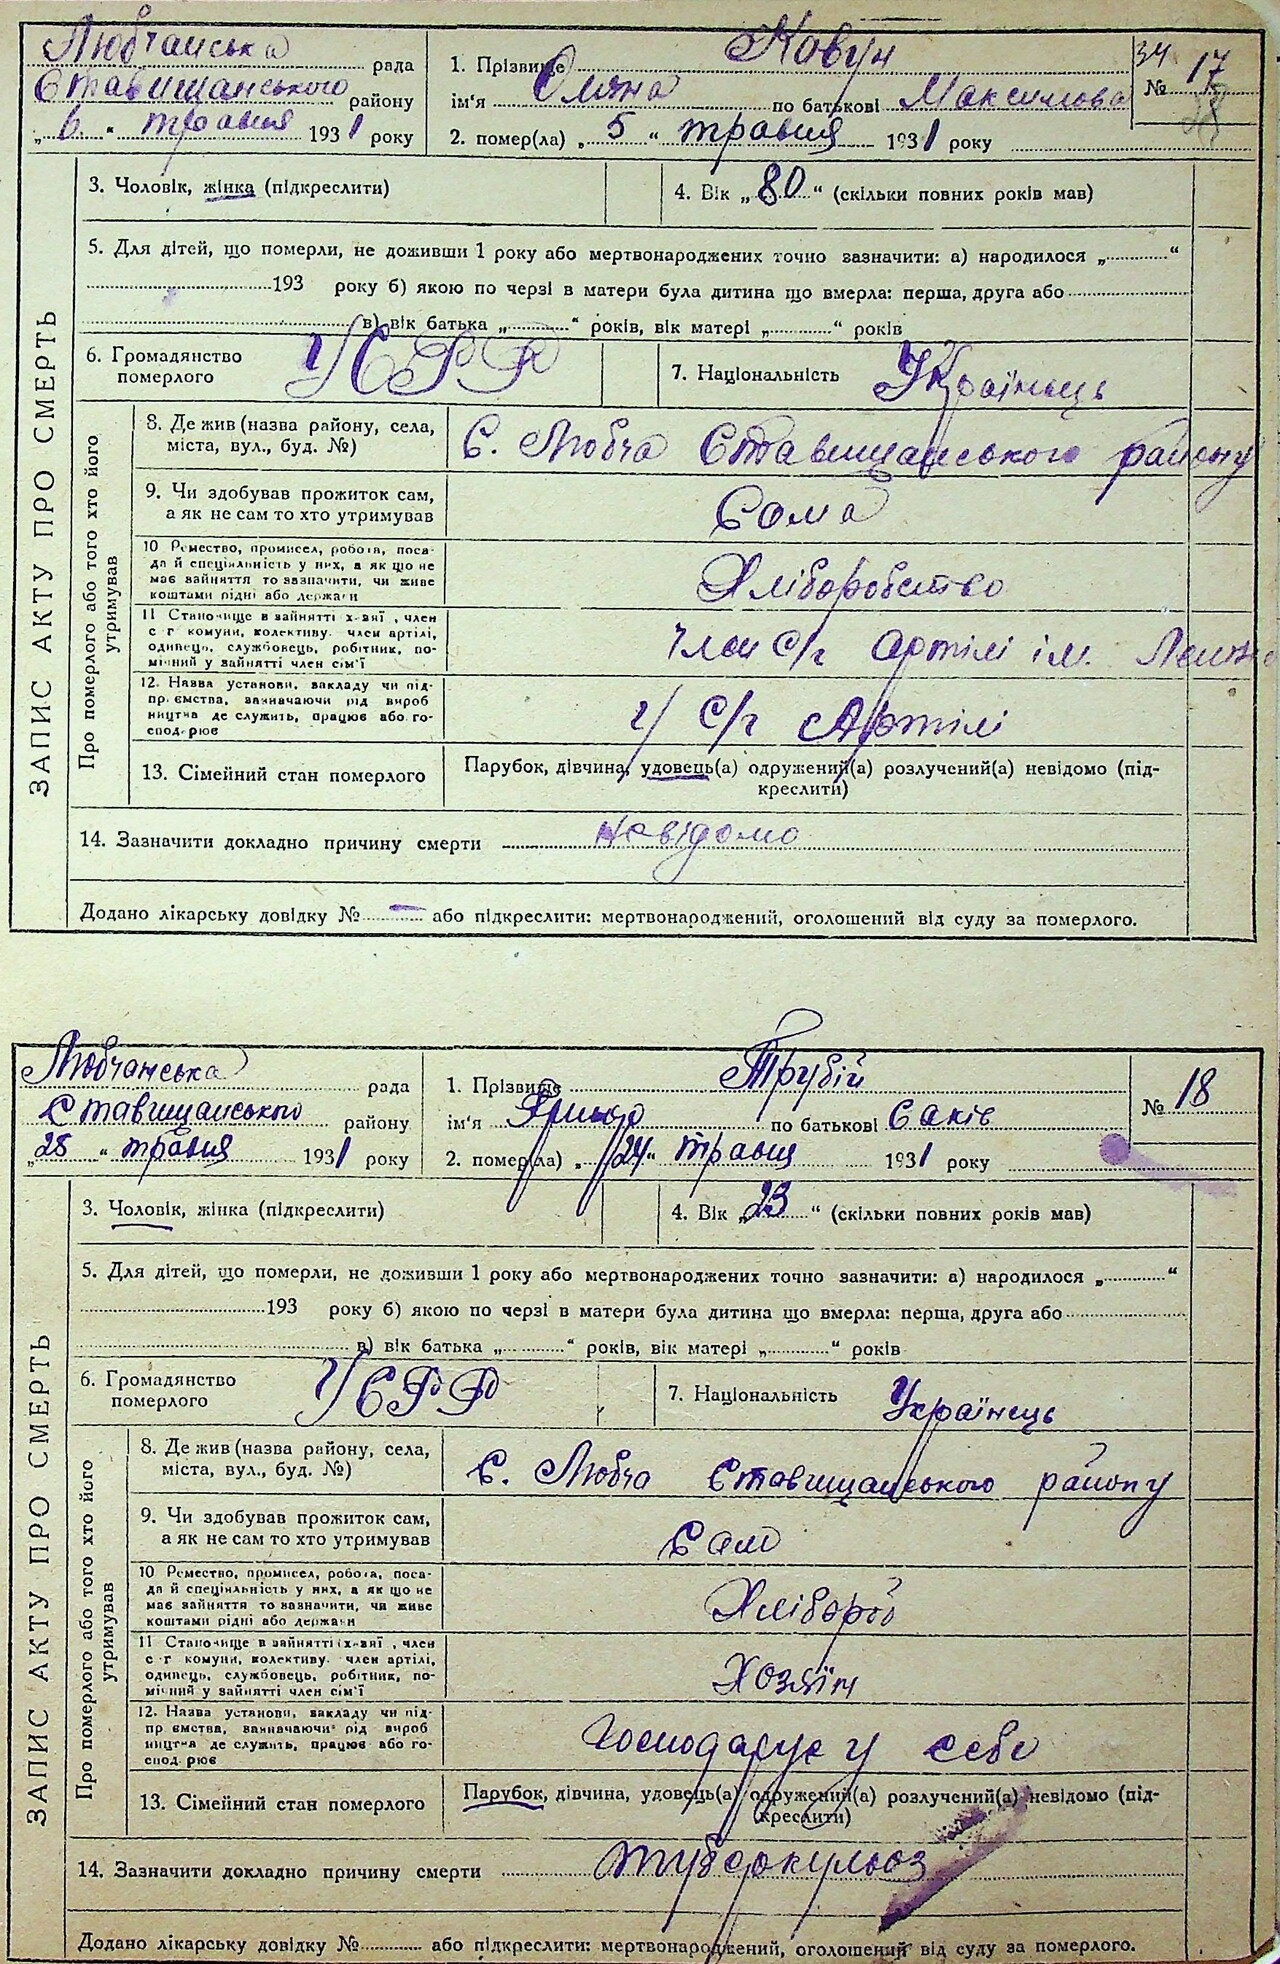 Любчанська рада
Ставищанського району
„ 6 “ травня 1931 року
1. Прізвище Кавун
ім‘я Оляна по батькові Максимова
2. помер(ла) „ 5 “ травня 1931 року
34
№ 17
28
ЗАПИС АКТУ ПРО СМЕРТЬ
3. Чоловік, жінка (підкреслити)
4. Вік „ 80 “ (скільки повних років мав)
5. Для дітей, що померли, не доживши 1 року або мертвонароджених точно зазначити: а) народилося „ “
193 року б) якою по черзі в матери була дитина що вмерла: перша, друга або
в) вік батька „ “ років, вік матері „ “ років
6. Громадянство
померлого
УСРР
7. Національність Українець
Про померлого або того хто його
утримував
8. Де жив (назва району, села,
міста, вул., буд. №)
с. Любча Ставищанського району
9. Чи здобував прожиток сам,
а як не сам то хто утримував
Сама
10 Ремество, промисел, робота, поса-
да й спеціяльність у них, а як що не
має зайняття то зазначити, чи живе
коштами рідні або держави
Хліборобство
11 Становище в зайнятті х-зяї , член
с г комуни, колективу. член артілі,
одинець, службовець, робітник, по-
мічний у зайнятті член сім‘ї
Член С/г артілі ім. Леніна
12. Назва установи, закладу чи під-
пр ємства, зазначаючи рід вироб
ництва де служить, працює або го-
спод рює
у С/г Артілі
13. Сімейний стан померлого
Парубок, дівчина, удовець(а) одружений(а) розлучений(а) невідомо (під-
креслити)
14. Зазначити докладно причину смерти невідомо
Додано лікарську довідку № — або підкреслити: мертвонароджений, оголошений від суду за померлого.
Любчанська рада
Ставищанського району
„ 28 “ травня 1931 року
1. Прізвище Трубій
ім‘я по батькові Саків
2. помер(ла) „ 24 “ травня 1931 року
№ 18
ЗАПИС АКТУ ПРО СМЕРТЬ
3. Чоловік, жінка (підкреслити)
4. Вік „ 23 “ (скільки повних років мав)
5. Для дітей, що померли, не доживши 1 року або мертвонароджених точно зазначити: а) народилося „ “
193 року б) якою по черзі в матери була дитина що вмерла: перша, друга або
в) вік батька „ “ років, вік матері „ “ років
6. Громадянство
померлого
УСРР
7. Національність Українець
Про померлого або того хто його
утримував
8. Де жив (назва району, села,
міста, вул., буд. №)
с. Любча Ставищанського району
9. Чи здобував прожиток сам,
а як не сам то хто утримував
Сам
10 Ремество, промисел, робота, поса-
да й спеціяльність у них, а як що не
має зайняття то зазначити, чи живе
коштами рідні або держави
Хлібороб
11 Становище в зайнятті х-зяї , член
с г комуни, колективу. член артілі,
одинець, службовець, робітник, по-
мічний у зайнятті член сім‘ї
Хозяїн
12. Назва установи, закладу чи під-
пр ємства, зазначаючи рід вироб
ництва де служить, працює або го-
спод рює
Господарує у себе
13. Сімейний стан померлого
Парубок, дівчина, удовець(а) одружений(а) розлучений(а) невідомо (під-
креслити)
14. Зазначити докладно причину смерти туберкульоз
Додано лікарську довідку № або підкреслити: мертвонароджений, оголошений від суду за померлого.